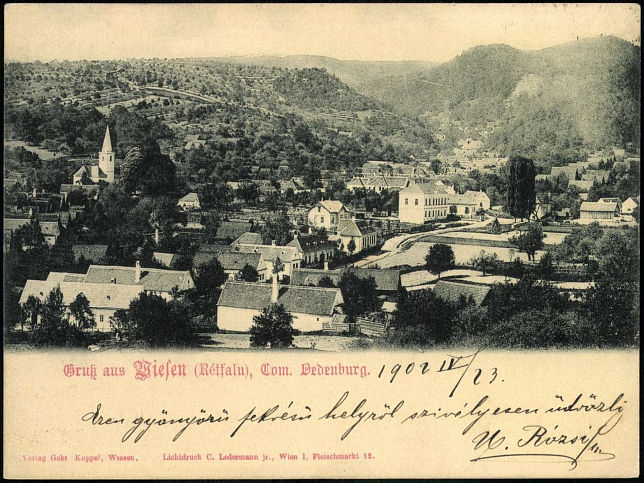 Gruß aus Wiesen (Rétfalu), Com. Oedenburg. 1902 IV/23.
Ezen gyönyörű fekvésű helyről szivélyesen üdvözli
U. Rózsi
Verlag Gebr. Koppel, Wiesen. Lichtdruck C. Ledermann jr., Wien I, Fleischmarkt 12.